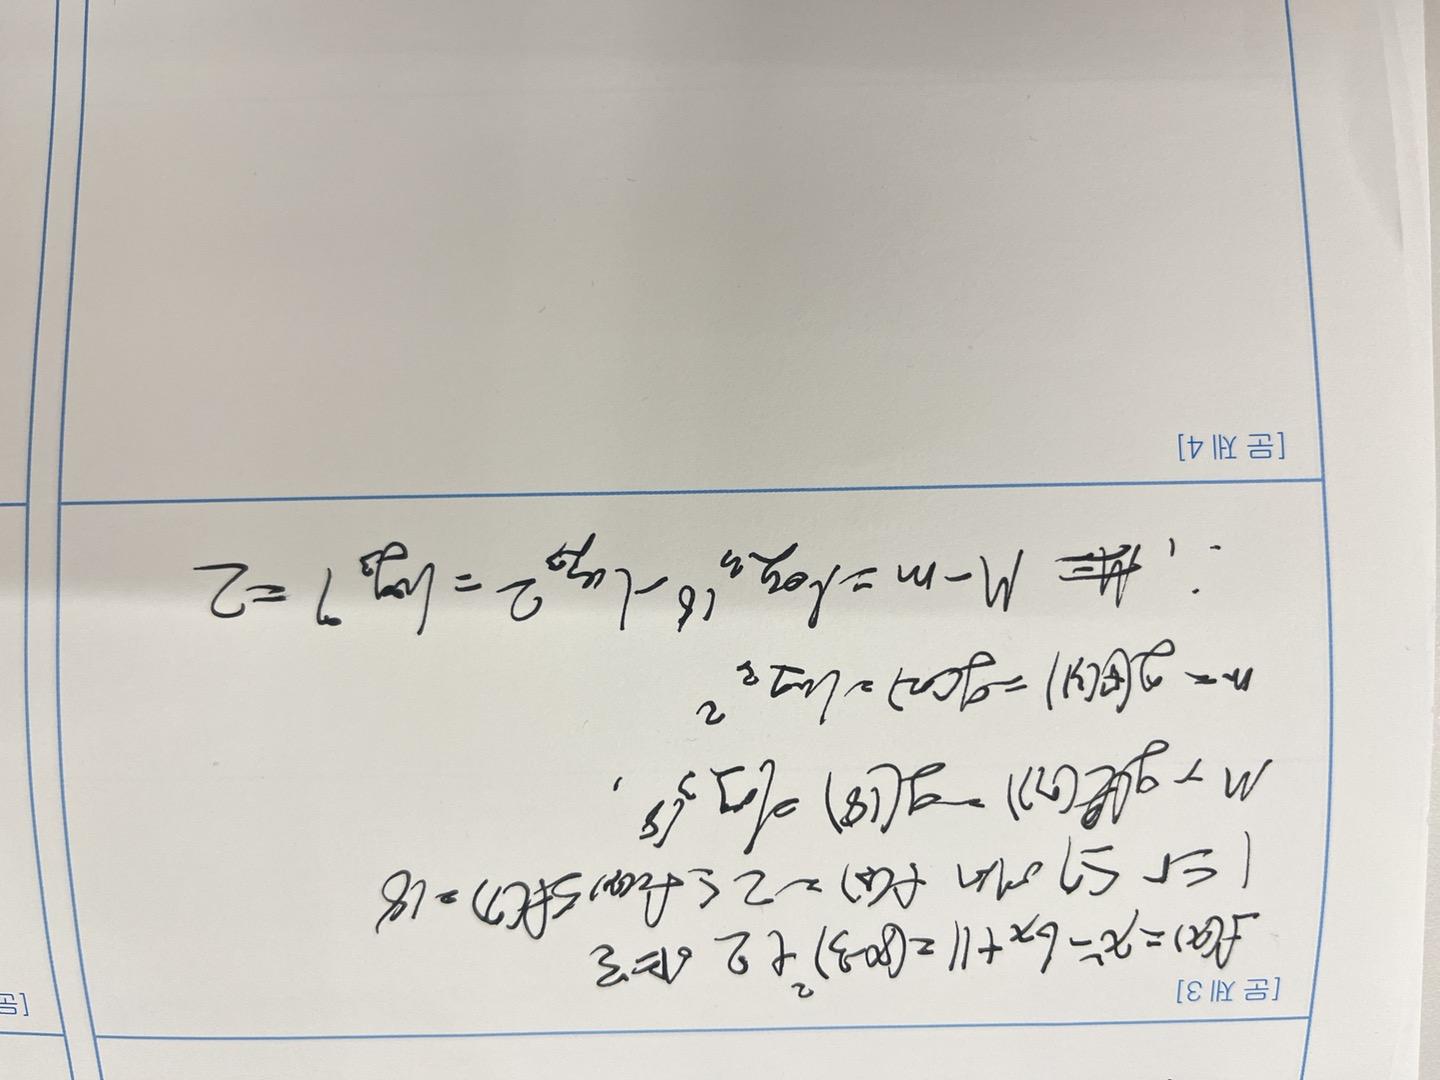 [문제 3]
f(x)=x²-6x+11=(x-3)²+2
1≤x≤7 에서 f(3)=2≤f(x)≤f(7)=18
M=g(f(7))=g(18)=log₃18
m=g(f(3))=g(2)=log₃2
∴ M-m=log₃18-log₃2=log₃9=2
[문제 4]